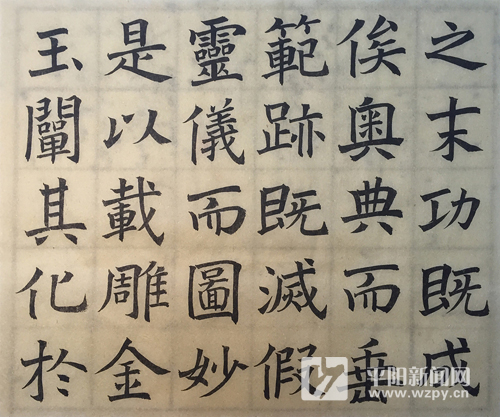 之末功既成
俟奥典而垂
範跡既滅假
靈儀而圖妙
是以載雕金
玉闡其化於
平阳新闻网
www.wzpy.cn